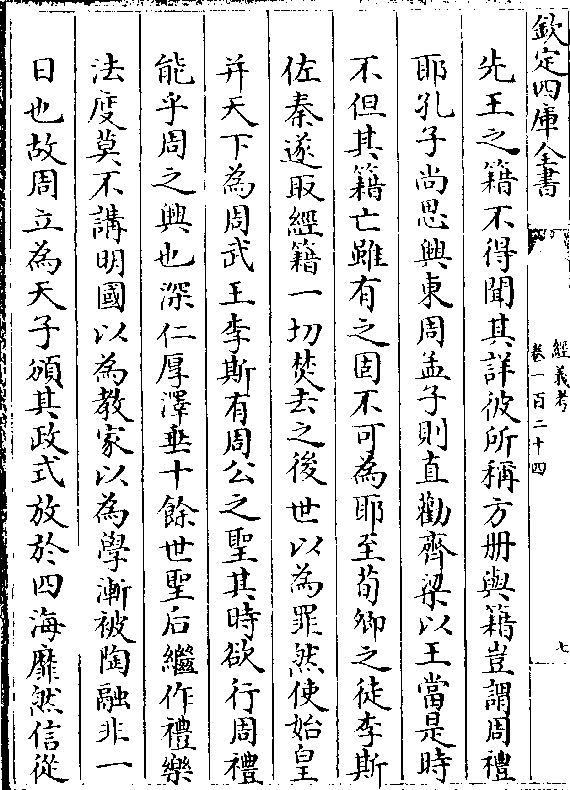 欽定四庫全書
經義考
卷一百二十四
七
先王之籍不得聞其詳彼所稱方册與籍豈謂周禮
耶孔子尚思興東周孟子則直勸齊梁以王當是時
不但其籍亡雖有之固不可為耶至荀卿之徒李斯
佐秦遂取經籍一切焚去之後世以為罪然使始皇
并天下為周武王李斯有周公之聖其時欲行周禮
能乎周之興也深仁厚澤垂十餘世聖后繼作禮樂
法度莫不講明國以為教家以為學漸被陶融非一
日也故周立為天子頒其政式放於四海靡然信從